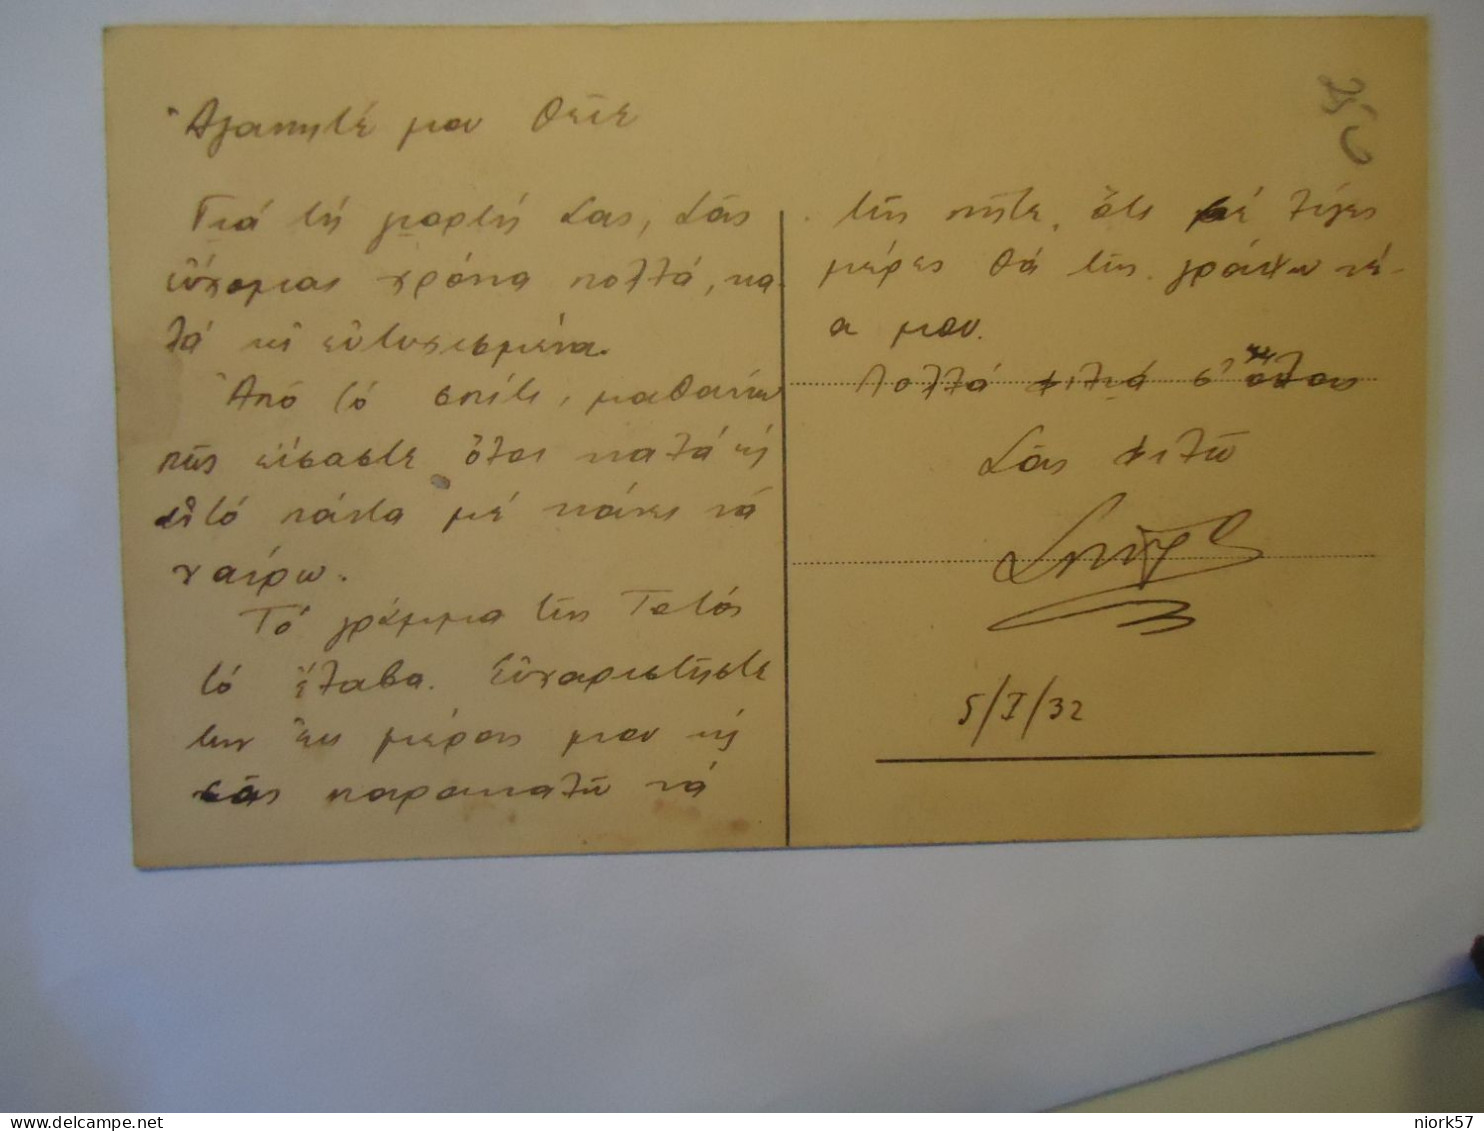 Ἀγαπητέ μου θεῖε
Γιά τή γιορτή Σας, Σᾶς
εὔχομαι χρόνια πολλά, κα
λά κι εὐτυχισμένα.
Ἀπό τό σπίτι, μαθαίνω
πῶς εἶσαστε ὅλοι καλά κή
αὐτό πάντα μέ κάνει νά
χαίρω.
Τό γράμμα τῆς Τοτός
τό ἔλαβα. Εὐχαριστήστε
την ἐκ μέρους μου κή
σᾶς παρακαλῶ νά
τῆς πῆτε, ὅτι σέ λίγες
μέρες θά τῆς γράψω νέ-
α μου.
Πολλά φιλιά σ' ὅλους
Σᾶς φιλῶ
Σπῦρο
5/I/32
niork57